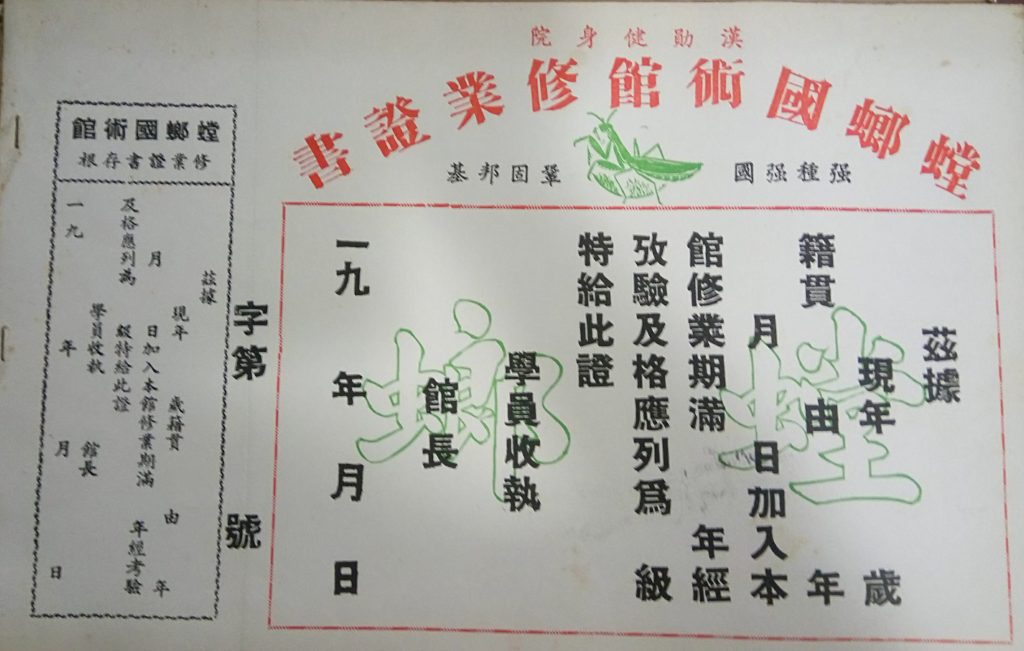 漢勛健身院
螳螂國術館修業證書
强種强國
鞏固邦基
茲據
現年 歲
籍貫 由 年
月 日加入本
館修業期滿 年經
攷驗及格應列爲 級
特給此證
學員收執
館長
一九 年 月 日
螳螂
字第 號
螳螂國術館
修業證書存根
茲據
現年 歲籍貫 由 年
月 日加入本館修業期滿 年經考驗
及格應列為 級特給此證
學員收執 館長
一九 年 月 日